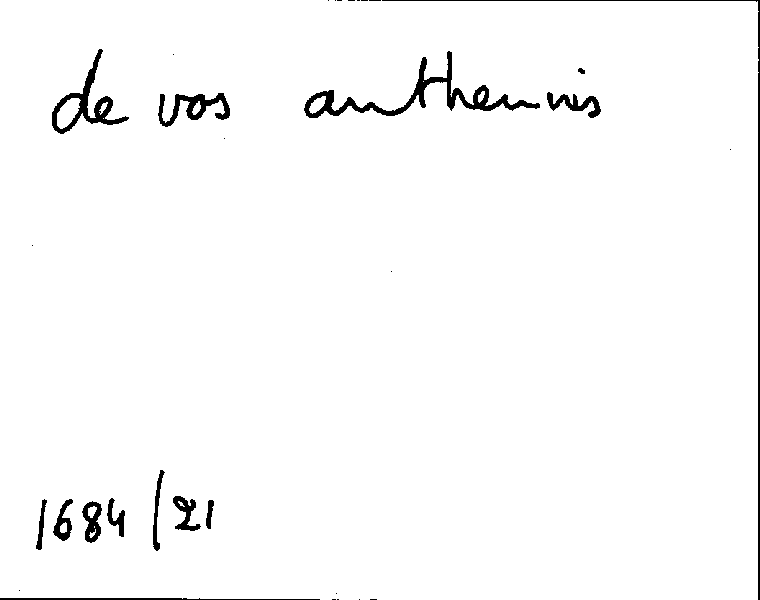 de vos anthennis
1684/21